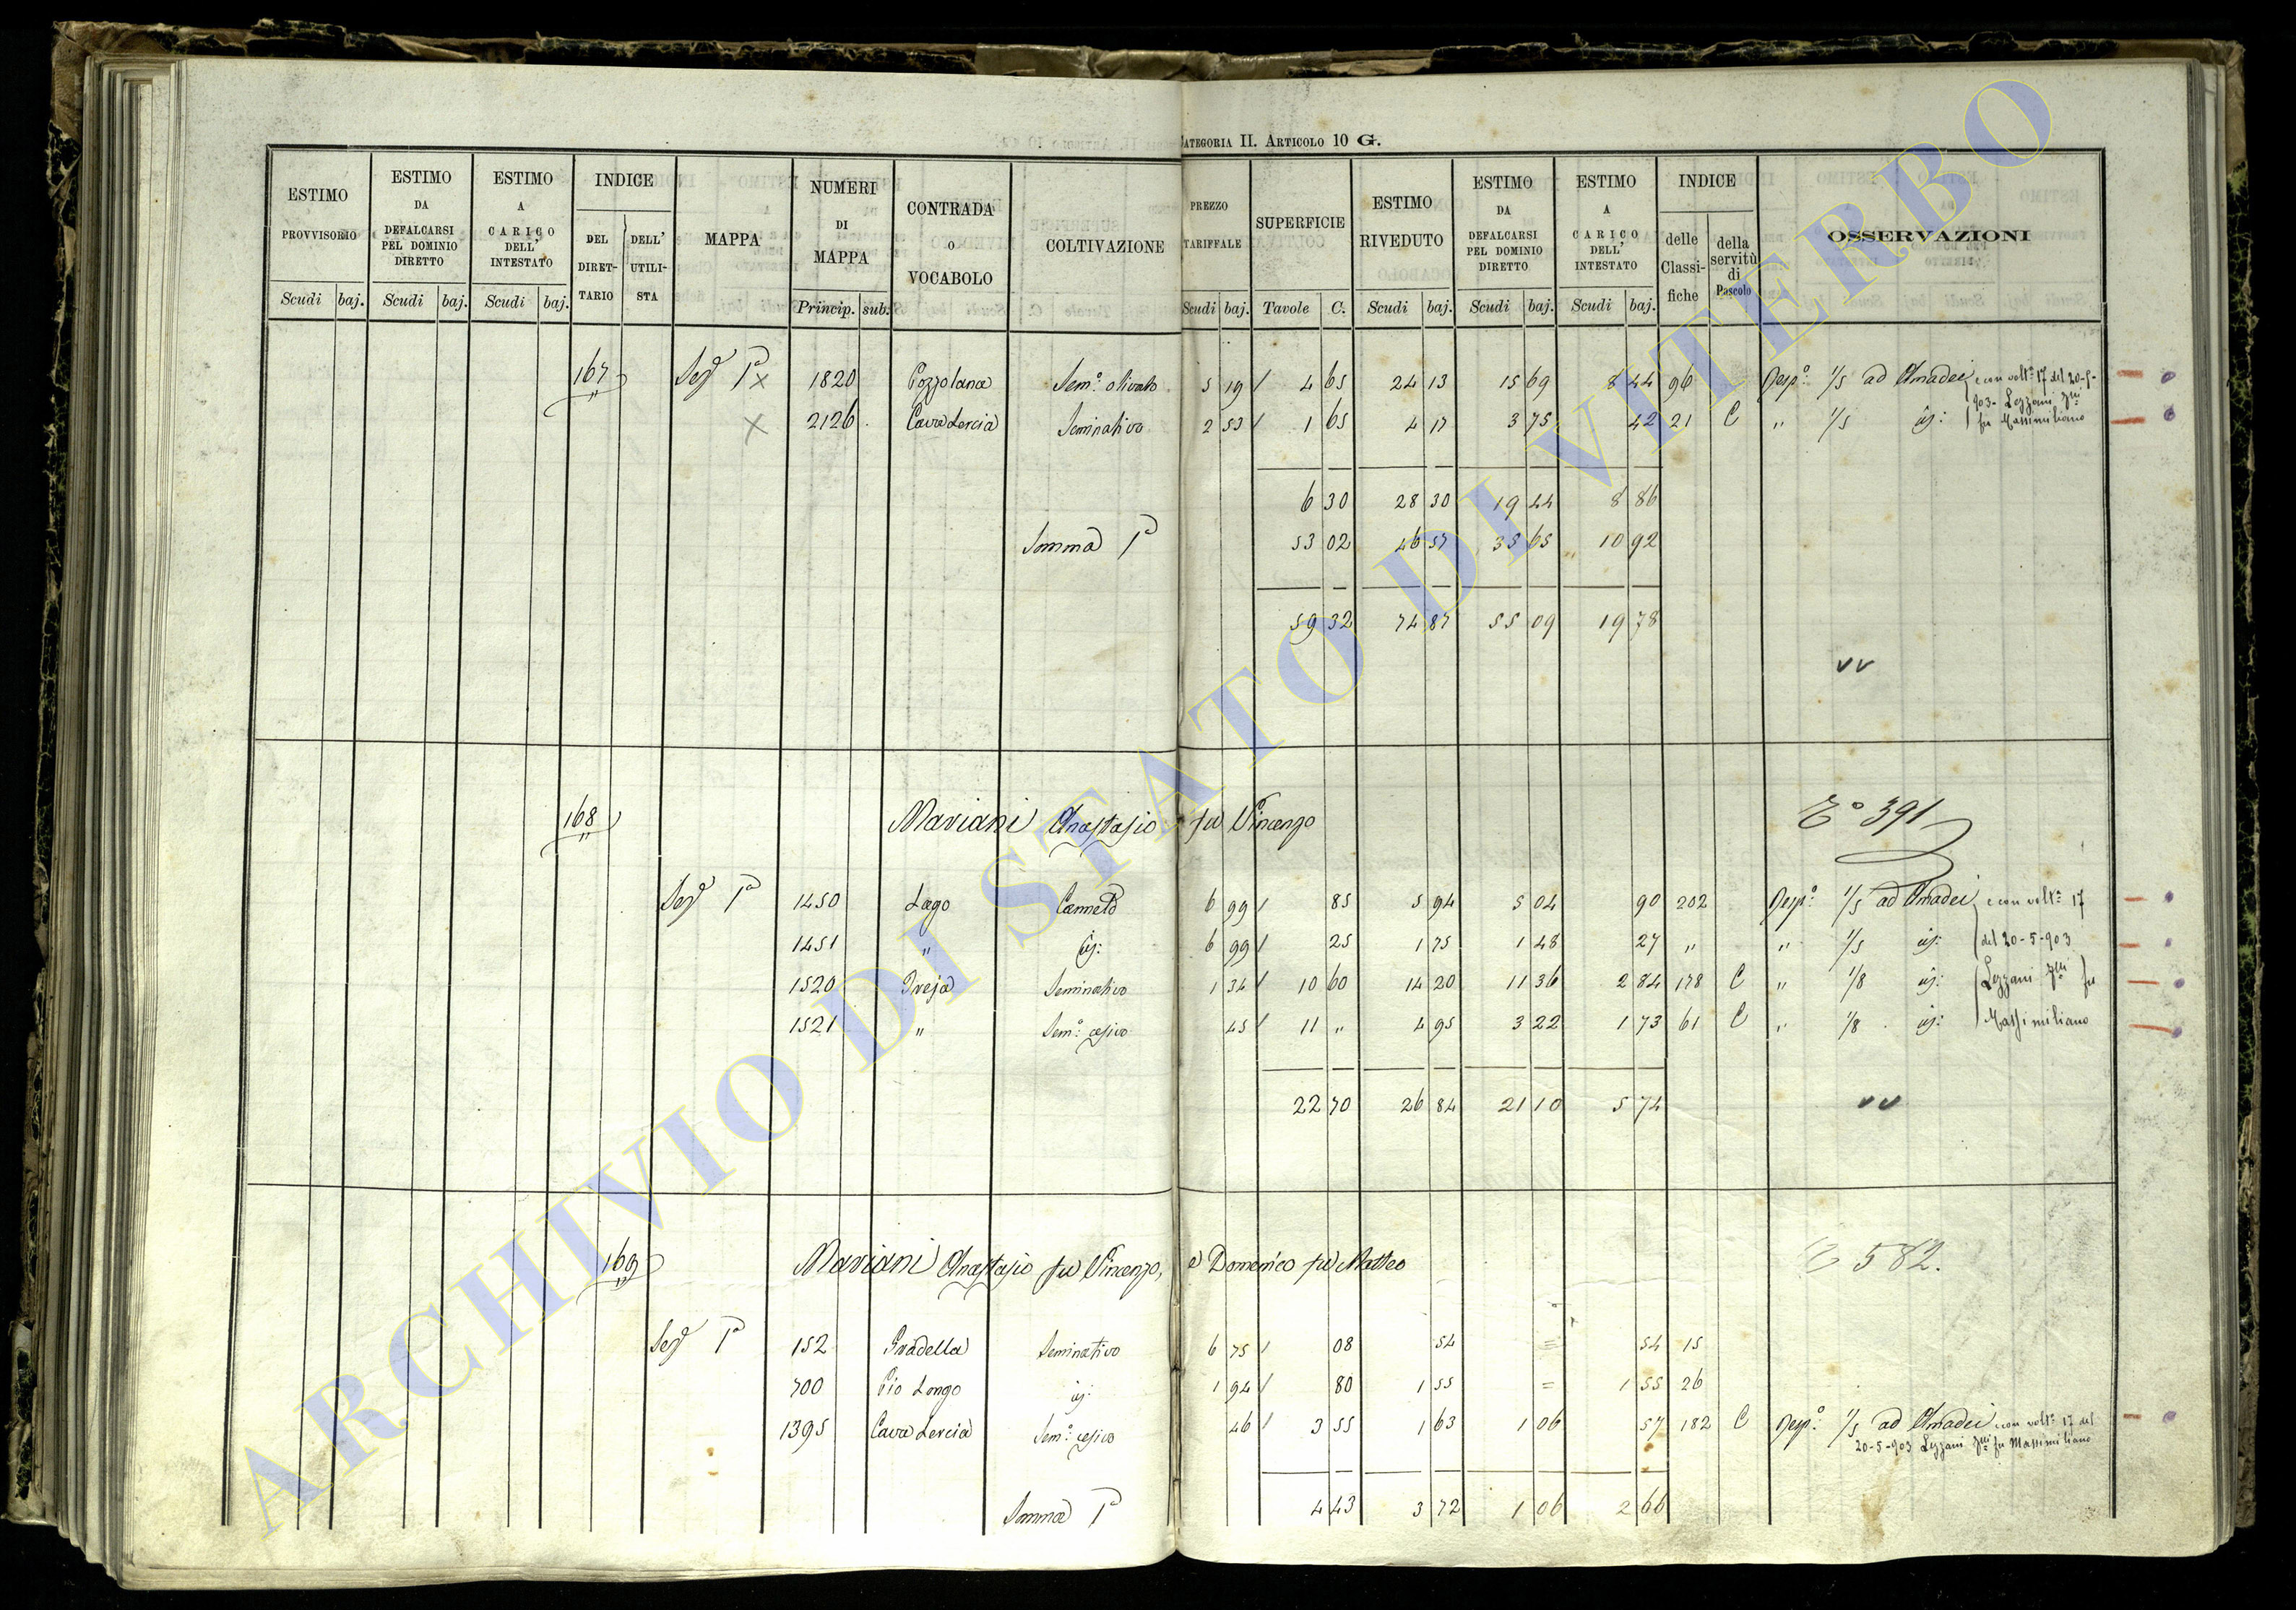 Categoria II. Articolo 10 G.
ESTIMO PROVVISORIO Scudi baj. ESTIMO DA DEFALCARSI PEL DOMINIO DIRETTO Scudi baj. ESTIMO A CARICO DELL' INTESTATO Scudi baj. INDICE DEL DIRET-TARIO DELL' UTILI-STA MAPPA NUMERI DI MAPPA Princip. sub. CONTRADA O VOCABOLO COLTIVAZIONE PREZZO TARIFFALE Scudi baj. SUPERFICIE Tavole C. ESTIMO RIVEDUTO Scudi baj. ESTIMO DA DEFALCARSI PEL DOMINIO DIRETTO Scudi baj. ESTIMO A CARICO DELL' INTESTATO Scudi baj. INDICE delle Classi-fiche della servitù di Pascolo OSSERVAZIONI
167 Sez. Iª x 1820 Pozzolana Sem.º olivato 5 19 / 4 65 24 13 15 69 8 44 96 Resp.º 1/5 ad Amadei e con volt.ª 17 del 20-5-
903- Lezzani
x 2126 Cava Lercia Seminativo 2 53 / 1 65 4 17 3 75 42 21 C " 1/5 id: fu Massimiliano
6 30 28 30 19 44 8 86
Somma Iª 53 02 46 57 35 65 10 92
59 32 74 87 55 09 19 78
vv
168 Mariani Anastasio fu Vincenzo Eº 391
Sez. Iª 1450 Lago Canneto 6 99 / 85 5 94 5 04 90 202 Resp.º 1/5 ad Amadei e con volt.ª 17
1451 " id: 6 99 / 25 1 75 1 48 27 " " 1/5 id: del 20-5-903
1520 Preja Seminativo 1 34 / 10 60 14 20 11 36 2 84 178 C " 1/8 id: Lezzani fu
1521 " Sem.º cesivo 45 / 11 " 4 95 3 22 1 73 61 C " 1/8 id: Massimiliano
22 70 26 84 21 10 5 74 vv
169 Mariani Anastasio fu Vincenzo, e Domenico fu Matteo E 582.
Sez. Iª 152 Gradella Seminativo 6 75 / 08 54 = 54 15
700 Pio Longo id: 1 94 / 80 1 55 = 1 55 26
1395 Cava Lercia Sem.º cesivo 46 / 3 55 1 63 1 06 57 182 C Resp.º 1/5 ad Amadei con volt.ª 17 del
20-5-903 Lezzani fu Massimiliano
Somma Iª 4 43 3 72 1 06 2 66
ARCHIVIO DI STATO DI VITERBO